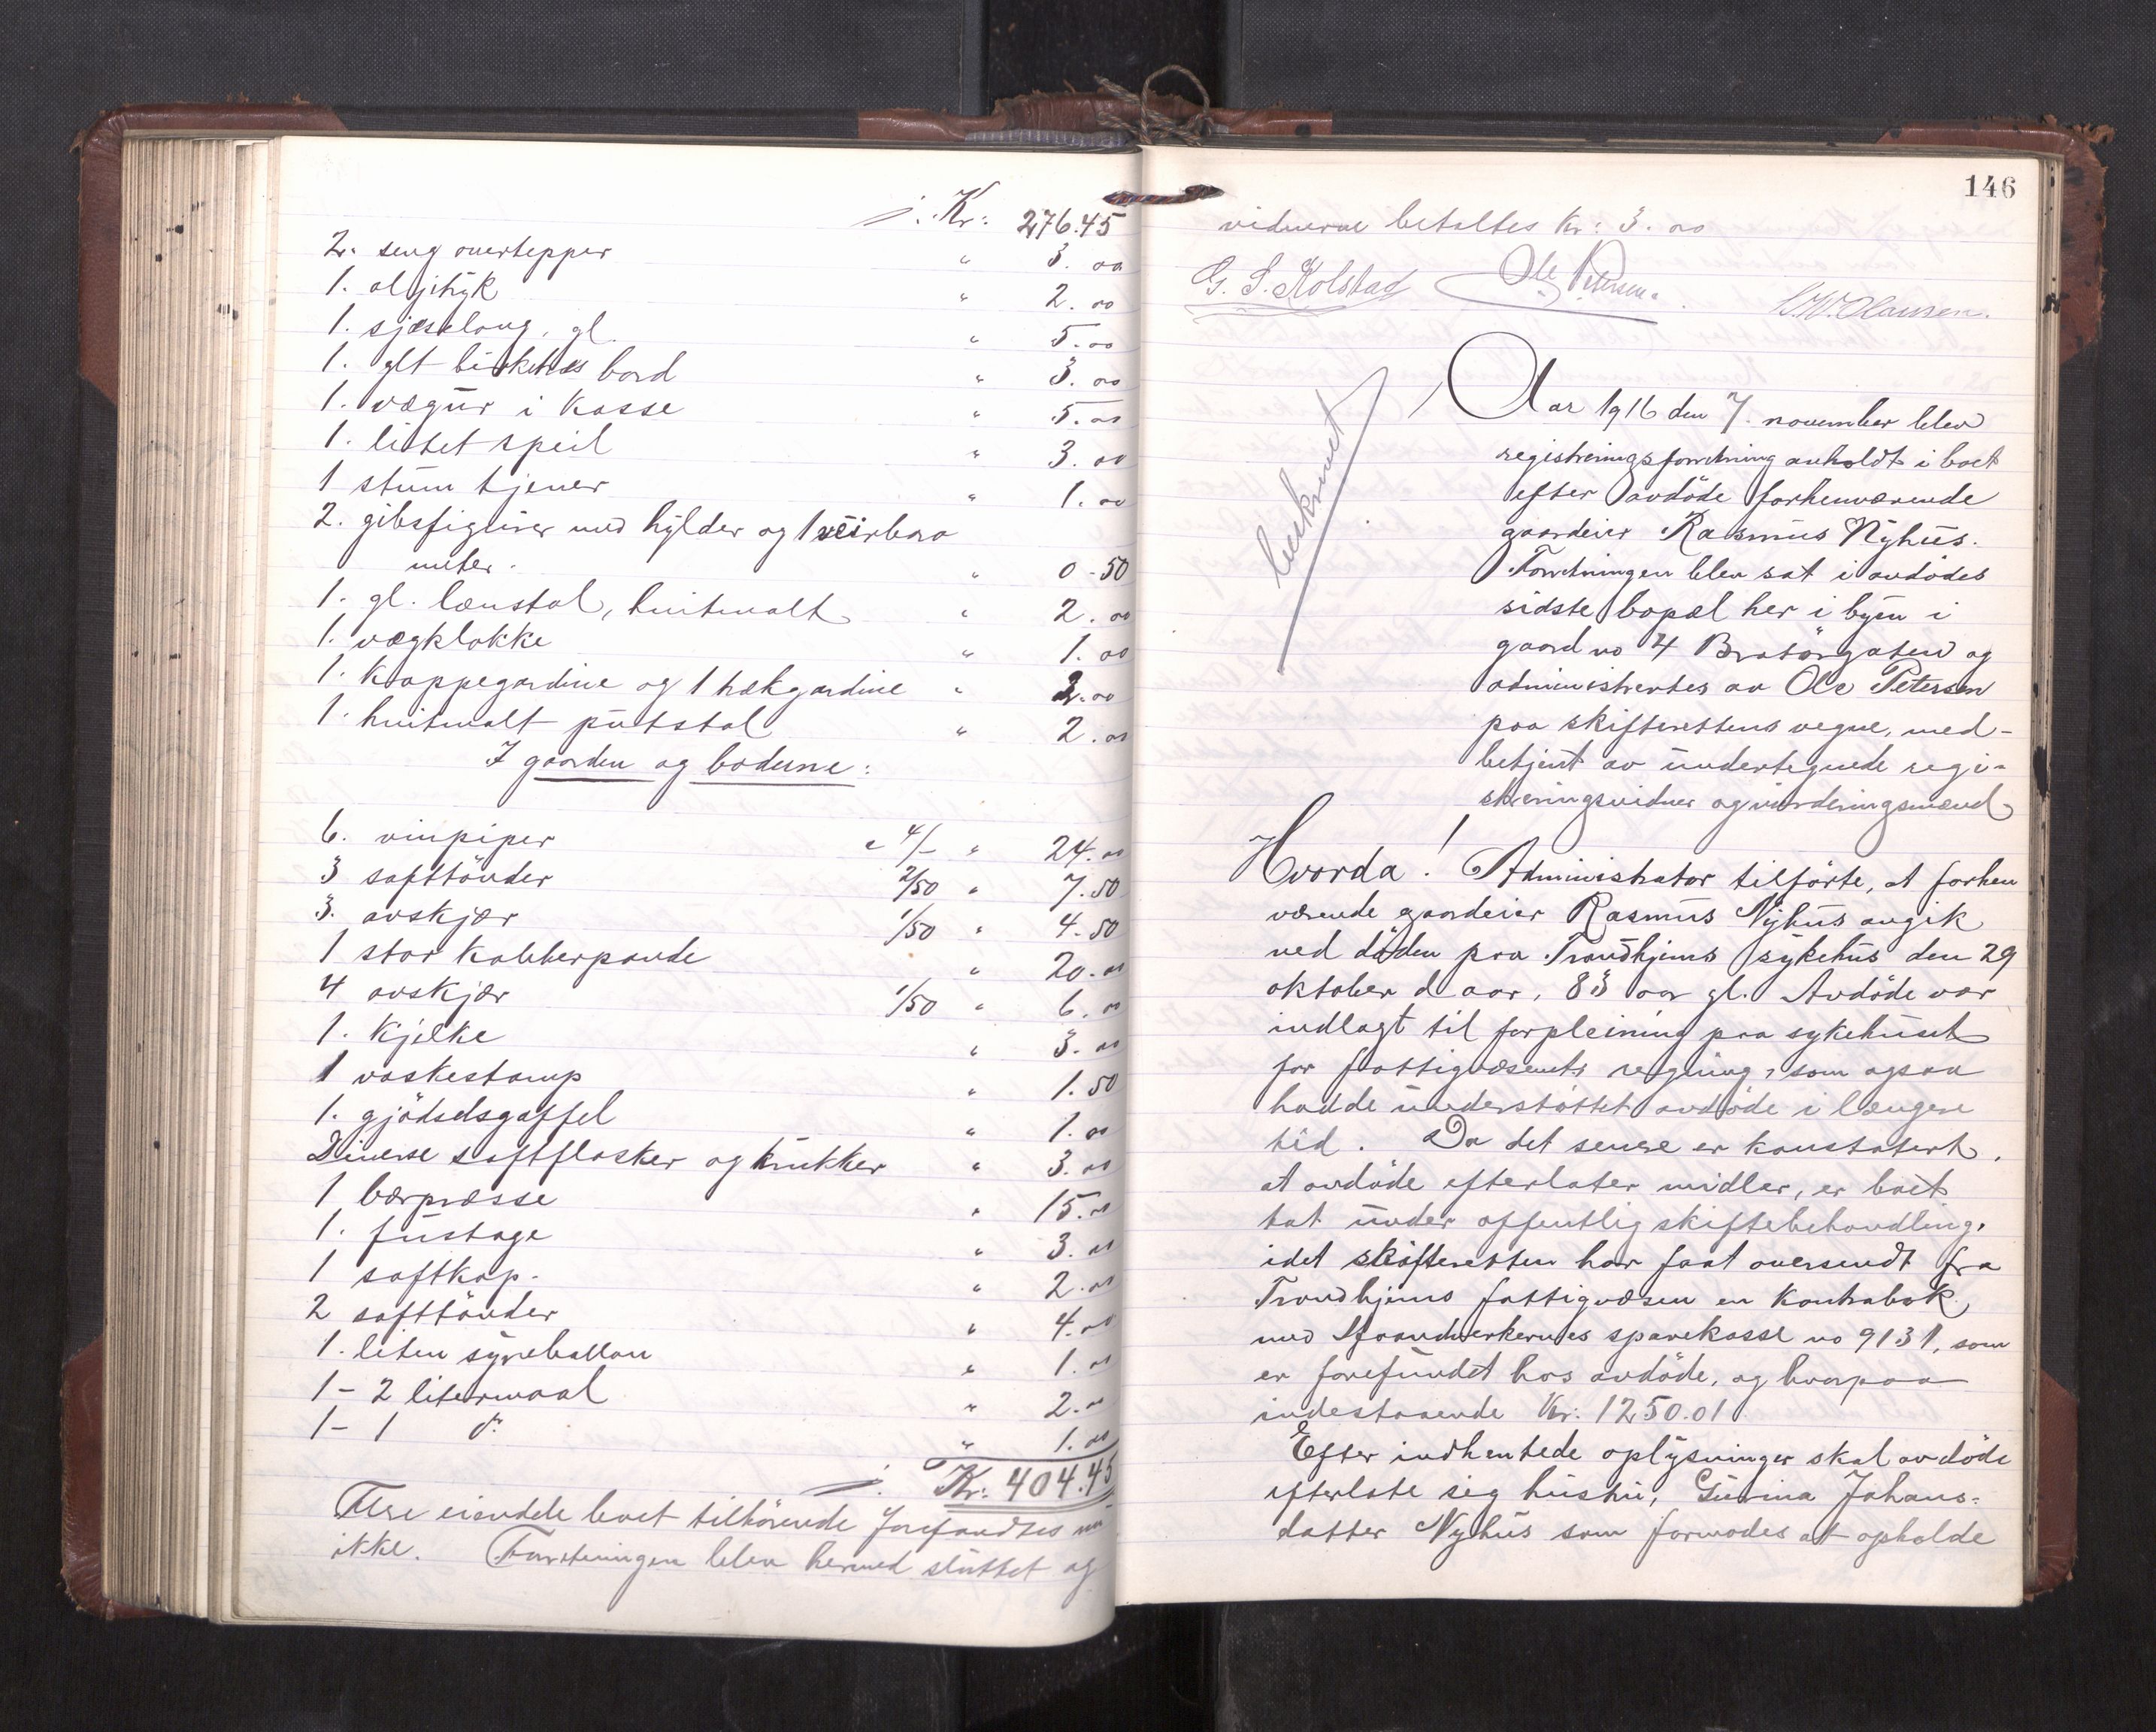 j. Kr: 276.45
2. seng overtepper " 3. 00
1. oljetryk " 2. 00
1. sjæselong, gl. " 5. 00
1. glt birketræs bord " 3. 00
1. vægur i kasse " 5. 00
1. litet speil " 3. 00
1 stum tjener " 1. 00
2. gibsfigurer med hylder og 1 veirbaro
meter. " 0-50
1. gl. lænstol, hvitmalt " 2. 00
1. vægklokke " 1. 00
1. kappegardine og 1 trækgardine " 2. 00
1. hvitmalt putstol " 2. 00
I gaarden og boderne:
6. vinpiper a 4/- " 24. 00
3 safttönder 2/50 " 7.50
3. avskjær 1/50 " 4.50
1 stor kobberpande " 20. 00
4 avskjær 1/50 " 6. 00
1. Kjelke " 3. 00
1 vaskestamp " 1.50
1. gjödselsgaffel " 1. 00
Diverse saftflasker og krukker " 3. 00
1 bærpresse " 15. 00
1. fustage " 3. 00
1 saftkop. " 2. 00
2 safttönder " 4. 00
1. liten syreballon " 1. 00
1- 2 litermaal " 2. 00
1- 1 do " 1. 00
j. Kr: 404.45
Flere eiendele boet tilhörende forefandtes
ikke. Forretningen blev hermed sluttet og
146
vidnerne betaltes kr: 3. 00
G. S. Kolstad Ole Petersen. Hansen.
Aar 1916 den 7. november blev
registreringsforretning avholdt i boet
efter avdöde forhenværende
gaardeier Rasmus Nyhus.
Forretningen blev sat i avdödes
sidste bopæl her i byen i
gaard no 4 Bratörgaten og
administrertes av Ole Petersen
paa skifterettens vegne, med-
betjent av undertegnede regi-
streringsvidner og vurderingsmænd
beskrevet
Hvorda! Administrator tilförte, at forhen
værende gaardeier Rasmus Nyhus avgik
ved döden paa Trondhjems sykehus den 29
oktober d aar, 83 aar gl. Avdöde var
indlagt til forpleining paa sykehuset
for fattigvæsenets regning, som ogsaa
hadde understöttet avdöde i længere
tid. Da det senere er konstatert,
at avdöde efterlater midler, er boet
tat under offentlig skiftebehandling,
idet skifteretten har faat oversendt fra
Trondhjems fattigvæsen en kontrabok
med Haandverkernes sparekasse no 9131, som
er forefundet hos avdöde, og hvorpaa
indestaaende Kr: 1250.01.
Efter indhentede oplysninger skal avdöde
efterlate sig hustru, Gurina Johans-
datter Nyhus som formodes at opholde